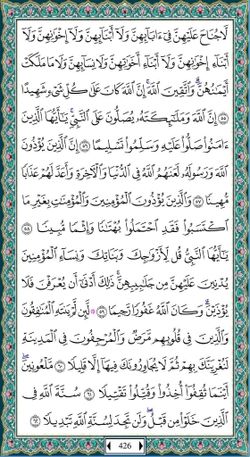 لَّا جُنَاحَ عَلَيْهِنَّ فِىٓ ءَابَآئِهِنَّ وَلَآ أَبْنَآئِهِنَّ وَلَآ إِخْوَٰنِهِنَّ وَلَآ
أَبْنَآءِ إِخْوَٰنِهِنَّ وَلَآ أَبْنَآءِ أَخَوَٰتِهِنَّ وَلَا نِسَآئِهِنَّ وَلَا مَا مَلَكَتْ
أَيْمَٰنُهُنَّ ۗ وَٱتَّقِينَ ٱللَّهَ ۚ إِنَّ ٱللَّهَ كَانَ عَلَىٰ كُلِّ شَىْءٍ شَهِيدًا
٥٥ إِنَّ ٱللَّهَ وَمَلَٰٓئِكَتَهُۥ يُصَلُّونَ عَلَى ٱلنَّبِىِّ ۚ يَٰٓأَيُّهَا ٱلَّذِينَ
ءَامَنُوا۟ صَلُّوا۟ عَلَيْهِ وَسَلِّمُوا۟ تَسْلِيمًا ٥٦ إِنَّ ٱلَّذِينَ يُؤْذُونَ
ٱللَّهَ وَرَسُولَهُۥ لَعَنَهُمُ ٱللَّهُ فِى ٱلدُّنْيَا وَٱلْءَاخِرَةِ وَأَعَدَّ لَهُمْ عَذَابًا
مُّهِينًا ٥٧ وَٱلَّذِينَ يُؤْذُونَ ٱلْمُؤْمِنِينَ وَٱلْمُؤْمِنَٰتِ بِغَيْرِ مَا
ٱكْتَسَبُوا۟ فَقَدِ ٱحْتَمَلُوا۟ بُهْتَٰنًا وَإِثْمًا مُّبِينًا ٥٨
يَٰٓأَيُّهَا ٱلنَّبِىُّ قُل لِّأَزْوَٰجِكَ وَبَنَاتِكَ وَنِسَآءِ ٱلْمُؤْمِنِينَ
يُدْنِينَ عَلَيْهِنَّ مِن جَلَٰبِيبِهِنَّ ۚ ذَٰلِكَ أَدْنَىٰٓ أَن يُعْرَفْنَ فَلَا
يُؤْذَيْنَ ۗ وَكَانَ ٱللَّهُ غَفُورًا رَّحِيمًا ٥٩ ۞ لَّئِن لَّمْ يَنتَهِ ٱلْمُنَٰفِقُونَ
وَٱلَّذِينَ فِى قُلُوبِهِم مَّرَضٌ وَٱلْمُرْجِفُونَ فِى ٱلْمَدِينَةِ
لَنُغْرِيَنَّكَ بِهِمْ ثُمَّ لَا يُجَاوِرُونَكَ فِيهَآ إِلَّا قَلِيلًا ٦٠ مَّلْعُونِينَ ۖ
أَيْنَمَا ثُقِفُوٓا۟ أُخِذُوا۟ وَقُتِّلُوا۟ تَقْتِيلًا ٦١ سُنَّةَ ٱللَّهِ فِى
ٱلَّذِينَ خَلَوْا۟ مِن قَبْلُ ۖ وَلَن تَجِدَ لِسُنَّةِ ٱللَّهِ تَبْدِيلًا ٦٢
426